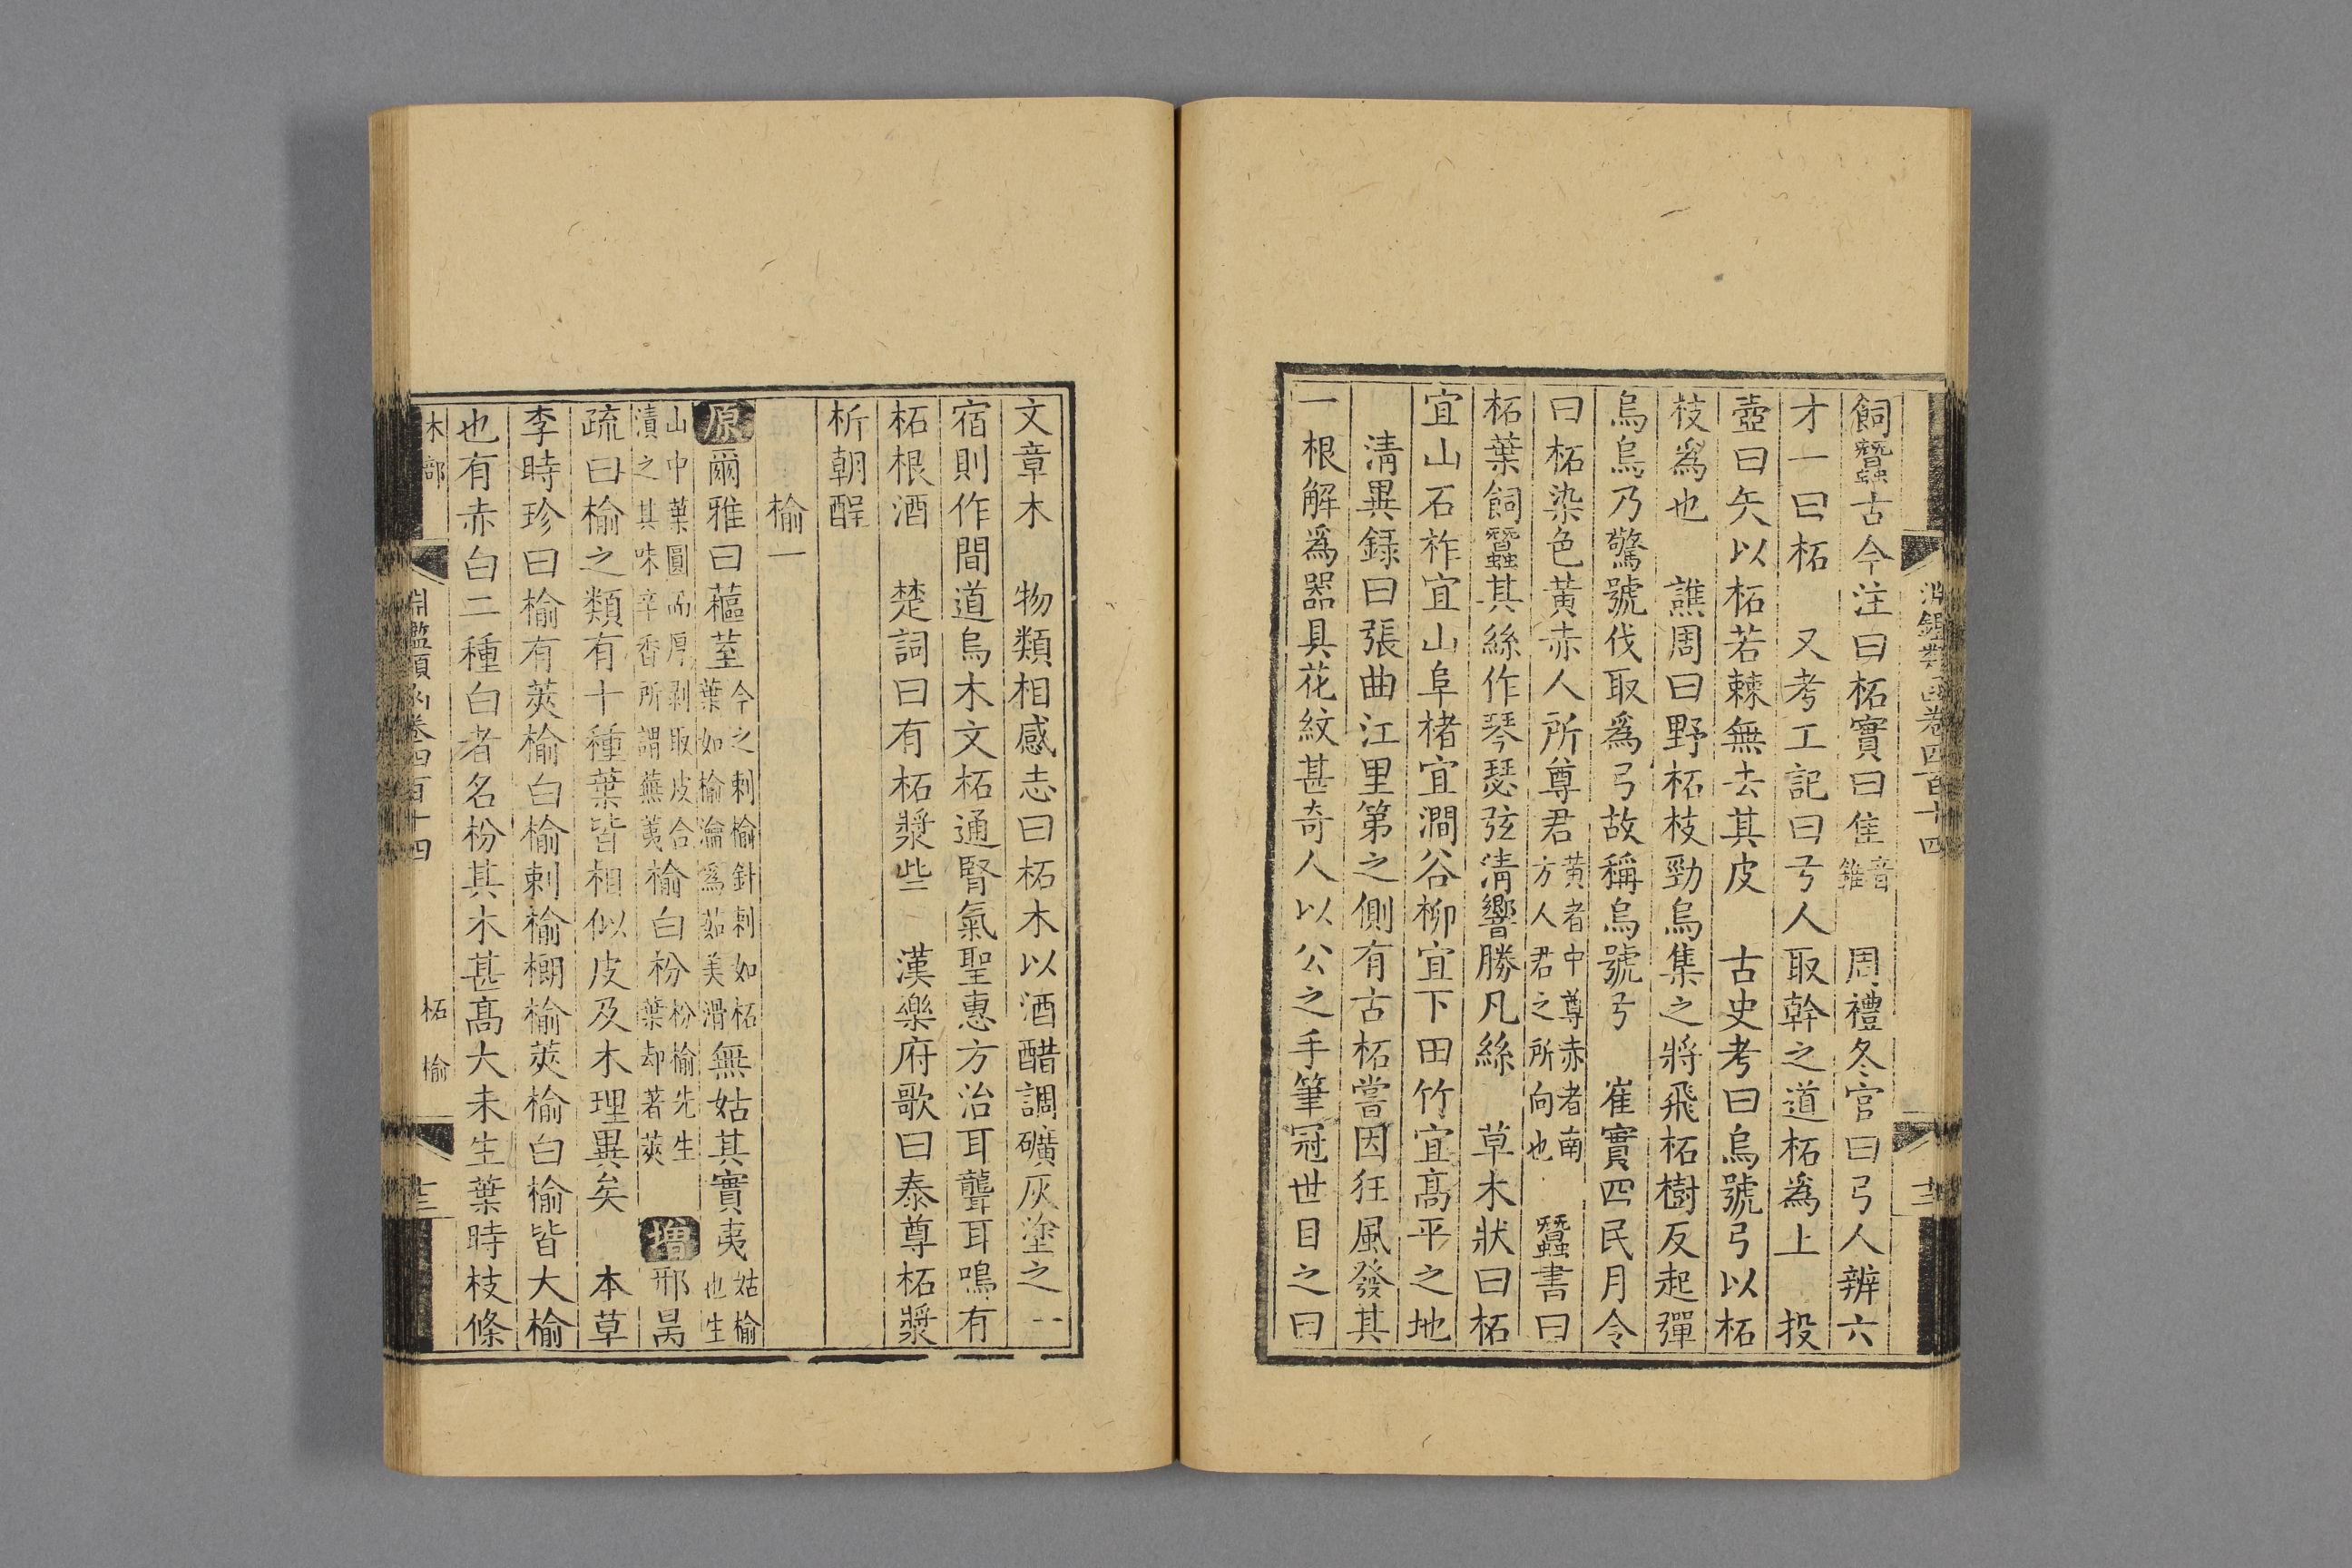 淵鑑類函卷四百十四
十二
飼蠶古今注曰柘實曰隹音雖　周禮冬官曰弓人辨六
才一曰柘　又考工記曰弓人取幹之道柘爲上　投
壺曰矢以柘若棘無去其皮　古史考曰烏號弓以柘
枝爲也　譙周曰野柘枝勁烏集之將飛柘樹反起彈
烏烏乃驚號伐取爲弓故稱烏號弓　崔實四民月令
曰柘染色黃赤人所尊君黃者中尊赤者南方人君之所向也　蠶書曰
柘葉飼蠶其絲作琴瑟弦淸響勝凡絲　草木狀曰柘
宜山石柞宜山阜楮宜澗谷柳宜下田竹宜高平之地
淸異録曰張曲江里第之側有古柘嘗因狂風發其
一根解爲器具花紋甚奇人以公之手筆冠世目之曰
文章木　物類相感志曰柘木以酒醋調礦灰塗之一
宿則作間道烏木文柘通腎氣聖惠方治耳聾耳鳴有
柘根酒　楚詞曰有柘漿些　漢樂府歌曰泰尊柘漿
析朝酲
榆一
原爾雅曰藲荎今之刺榆針刺如柘葉如榆瀹爲茹美滑無姑其實夷姑榆也生
山中葉圓而厚剥取皮合漬之其味辛香所謂蕪荑榆白枌枌榆先生葉却著莢　增邢昺
疏曰榆之類有十種葉皆相似皮及木理異矣　本草
李時珍曰榆有莢榆白榆刺榆榔榆莢榆白榆皆大榆
也有赤白二種白者名枌其木甚高大未生葉時枝條
木部
淵鑑類函卷四百十四
柘　榆
十三